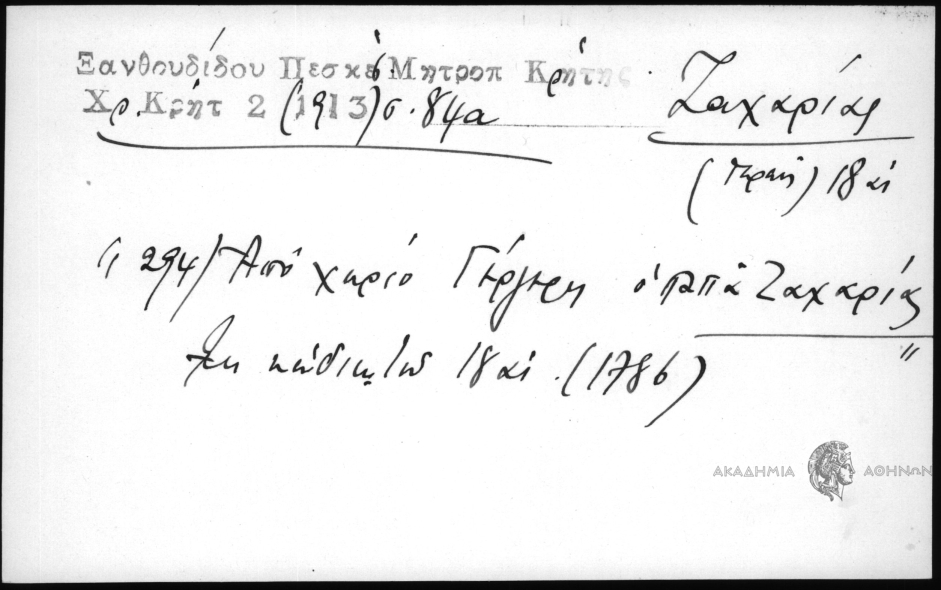 Ξανθουδίδου Πεσκέσ Μητροπ Κρήτης
Χρ. Κρήτ 2 (1913) σ. 84α
Ζαχαρίας
18 αι
" 294/ Από χωριό Γέργερη ο παπά Ζαχαρίας "
Εκ κώδικ. τού 18 αι. (1786)
ΑΚΑΔΗΜΙΑ ΑΘΗΝΩΝ